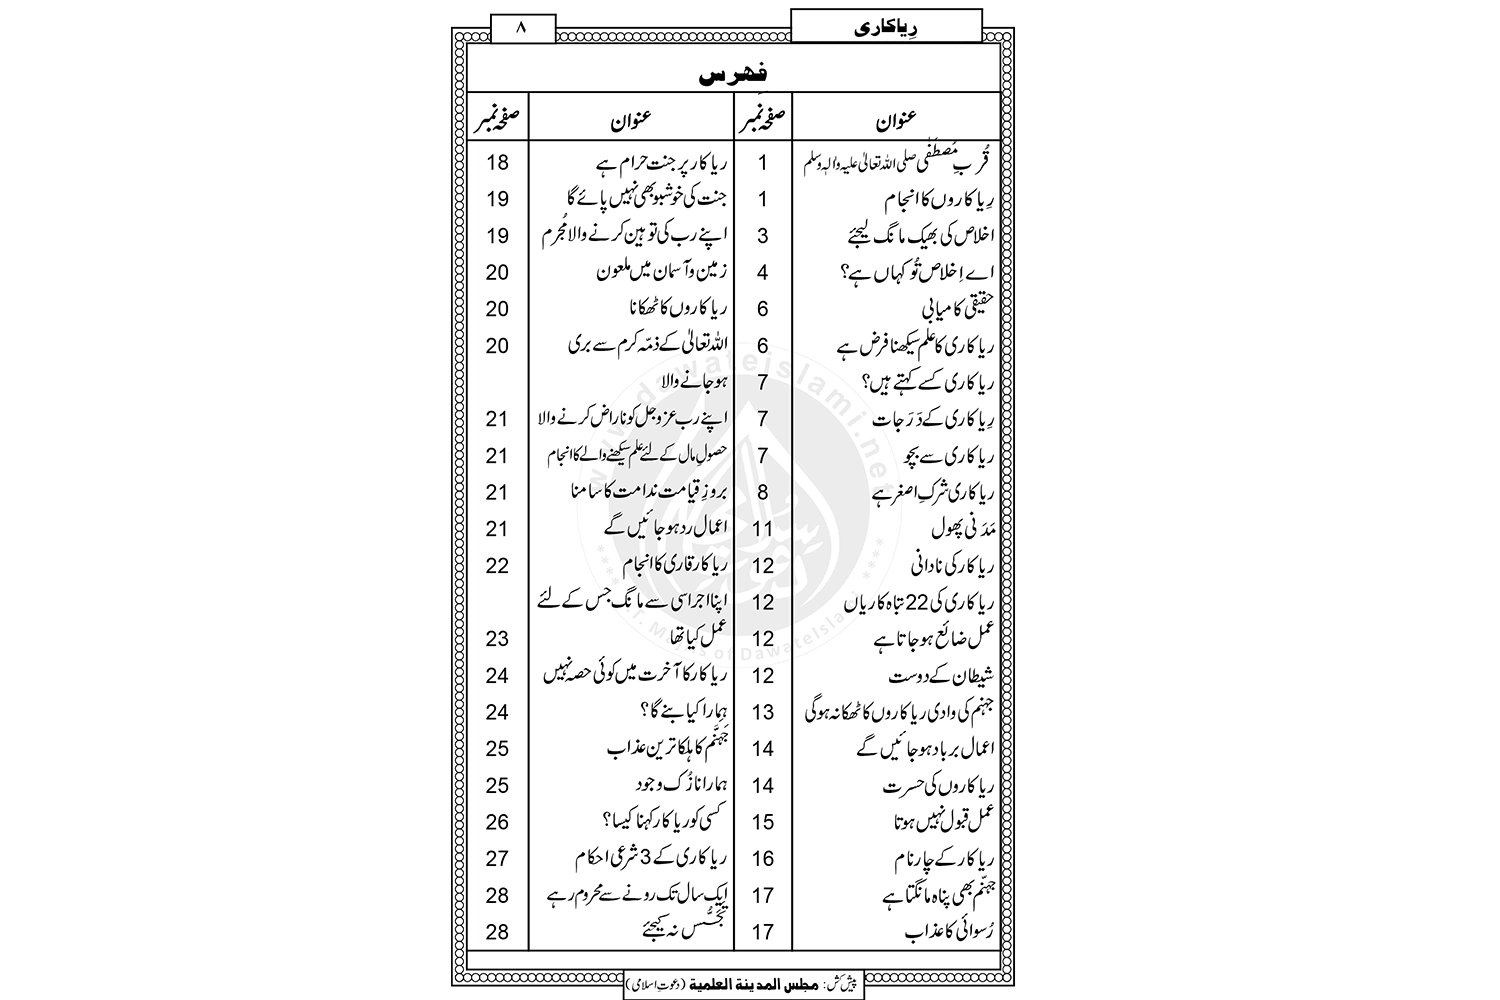 رِیاکاری
۸
فِہرس
عنوان صفحہ نمبر
قُربِ مُصطَفٰی صلی اللہ تعالیٰ علیہ والہٖ وسلم 1
رِیاکاروں کا انجام 1
اخلاص کی بھیک مانگ لیجئے 3
اے اِخلاص تُو کہاں ہے؟ 4
حقیقی کامیابی 6
ریاکاری کا علم سیکھنا فرض ہے 6
ریاکاری کسے کہتے ہیں؟ 7
رِیاکاری کے دَرَجات 7
ریاکاری سے بچو 7
ریاکاری شرکِ اصغر ہے 8
مَدَنی پھول 11
ریاکار کی نادانی 12
ریاکاری کی 22 تباہ کاریاں 12
عمل ضائع ہوجاتا ہے 12
شیطان کے دوست 12
جہنم کی وادی ریاکاروں کا ٹھکانہ ہوگی 13
اعمال برباد ہوجائیں گے 14
ریاکاروں کی حسرت 14
عمل قبول نہیں ہوتا 15
ریاکار کے چار نام 16
جہنّم بھی پناہ مانگتا ہے 17
رُسوائی کا عذاب 17
عنوان صفحہ نمبر
ریاکار پر جنت حرام ہے 18
جنت کی خوشبو بھی نہیں پائے گا 19
اپنے رب کی توہین کرنے والا مُجرم 19
زمین و آسمان میں ملعون 20
ریاکاروں کا ٹھکانا 20
اللہ تعالیٰ کے ذمّہ کرم سے بری 20
ہوجانے والا
اپنے رب عزوجل کو ناراض کرنے والا 21
حصولِ مال کے لئے علم سیکھنے والے کا انجام 21
بروزِ قیامت ندامت کا سامنا 21
اعمال رد ہوجائیں گے 21
ریاکار قاری کا انجام 22
اپنا اجر اسی سے مانگ جس کے لئے
عمل کیا تھا 23
ریاکار کا آخرت میں کوئی حصہ نہیں 24
ہمارا کیا بنے گا؟ 24
جَہَنَّم کا ہلکا ترین عذاب 25
ہمارا نازُک وجود 25
کسی کو ریاکار کہنا کیسا؟ 26
ریاکاری کے 3 شرعی احکام 27
ایک سال تک رونے سے محروم رہے 28
تَجَسُّس نہ کیجئے 28
پیش کش: مجلس المدینة العلمیة (دعوتِ اسلامی)
www.dawateislami.net
I.T. Majlis of DawateIslami